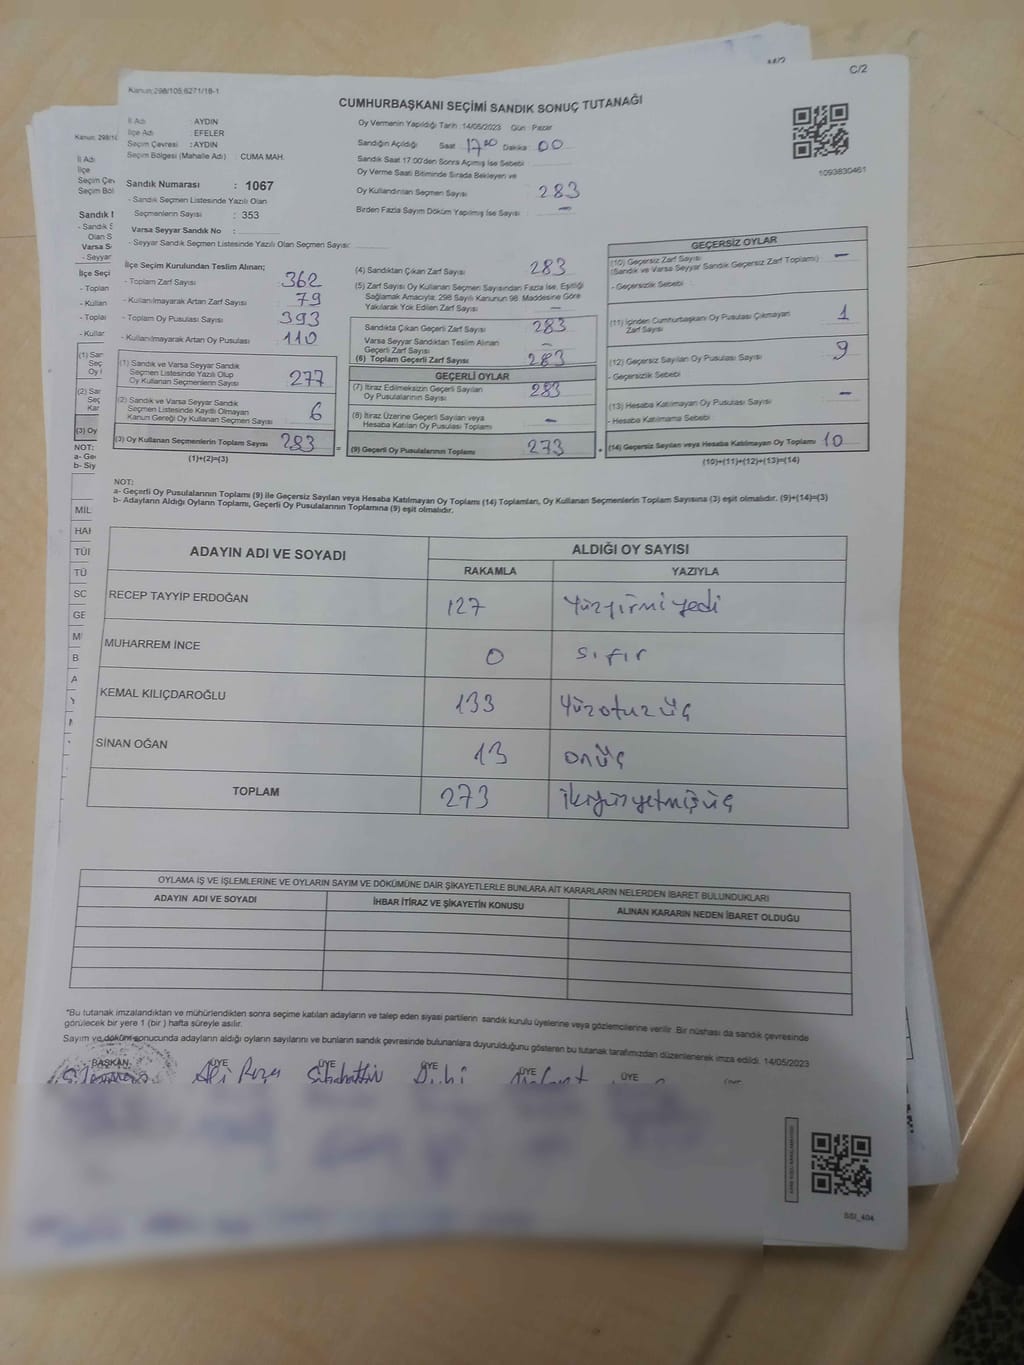 C/2
Kanun:298/105,6271/18-1
CUMHURBAŞKANI SEÇİMİ SANDIK SONUÇ TUTANAĞI
İl Adı : AYDIN
İlçe Adı : EFELER
Seçim Çevresi : AYDIN
Seçim Bölgesi (Mahalle Adı) : CUMA MAH.
Sandık Numarası : 1067
- Sandık Seçmen Listesinde Yazılı Olan
Seçmenlerin Sayısı : 353
Varsa Seyyar Sandık No :
- Seyyar Sandık Seçmen Listesinde Yazılı Olan Seçmen Sayısı:
Oy Vermenin Yapıldığı Tarih :14/05/2023 Gün : Pazar
Sandığın Açıldığı Saat : 17:00 Dakika : 00
Sandık Saat 17.00'den Sonra Açılmış İse Sebebi :
Oy Verme Saati Bitiminde Sırada Bekleyen ve
Oy Kullandırılan Seçmen Sayısı 283
Birden Fazla Sayım Döküm Yapılmış İse Sayısı : -
1093830461
İlçe Seçim Kurulundan Teslim Alınan;
- Toplam Zarf Sayısı : 362
- Kullanılmayarak Artan Zarf Sayısı : 79
- Toplam Oy Pusulası Sayısı : 393
- Kullanılmayarak Artan Oy Pusulası : 110
(1) Sandık ve Varsa Seyyar Sandık
Seçmen Listesinde Yazılı Olup
Oy Kullanan Seçmenlerin Sayısı 277
(2) Sandık ve Varsa Seyyar Sandık
Seçmen Listesinde Kayıtlı Olmayan
Kanun Gereği Oy Kullanan Seçmen Sayısı 6
(3) Oy Kullanan Seçmenlerin Toplam Sayısı 283 =
(1)+(2)=(3)
(4) Sandıktan Çıkan Zarf Sayısı 283
(5) Zarf Sayısı Oy Kullanan Seçmen Sayısından Fazla İse, Eşitliği
Sağlamak Amacıyla; 298 Sayılı Kanunun 98. Maddesine Göre
Yakılarak Yok Edilen Zarf Sayısı -
Sandıkta Çıkan Geçerli Zarf Sayısı 283
Varsa Seyyar Sandıktan Teslim Alınan
Geçerli Zarf Sayısı -
(6) Toplam Geçerli Zarf Sayısı 283
GEÇERLİ OYLAR
(7) İtiraz Edilmeksizin Geçerli Sayılan
Oy Pusulası Sayısı 283
(8) İtiraz Üzerine Geçerli Sayılan veya
Hesaba Katılan Oy Pusulası Toplamı -
(9) Geçerli Oy Pusulalarının Toplamı 273 +
GEÇERSİZ OYLAR
(10) Geçersiz Zarf Sayısı -
(Sandık ve Varsa Seyyar Sandık Geçersiz Zarf Toplamı)
- Geçersizlik Sebebi
(11) İçinden Cumhurbaşkanı Oy Pusulası Çıkmayan
Zarf Sayısı 1
(12) Geçersiz Sayılan Oy Pusulası Sayısı 9
- Geçersizlik Sebebi
(13) Hesaba Katılmayan Oy Pusulası Sayısı -
- Hesaba Katılmama Sebebi
(14) Geçersiz Sayılan veya Hesaba Katılmayan Oy Toplamı 10
(10)+(11)+(12)+(13)=(14)
NOT:
a- Geçerli Oy Pusulalarının Toplamı (9) ile Geçersiz Sayılan veya Hesaba Katılmayan Oy Toplamı (14) Toplamları, Oy Kullanan Seçmenlerin Toplam Sayısına (3) eşit olmalıdır. (9)+(14)=(3)
b- Adayların Aldığı Oyların Toplamı, Geçerli Oy Pusulalarının Toplamına (9) eşit olmalıdır.
ADAYIN ADI VE SOYADI ALDIĞI OY SAYISI
RAKAMLA YAZIYLA
RECEP TAYYİP ERDOĞAN 127 Yüzyirmiyedi
MUHARREM İNCE 0 sıfır
KEMAL KILIÇDAROĞLU 133 Yüzotuzüç
SİNAN OĞAN 13 onüç
TOPLAM 273 ikiyüzyetmişüç
OYLAMA İŞ VE İŞLEMLERİNE VE OYLARIN SAYIM VE DÖKÜMÜNE DAİR ŞİKAYETLERLE BUNLARA AİT KARARLARIN NELERDEN İBARET BULUNDUKLARI
ADAYIN ADI VE SOYADI İHBAR İTİRAZ VE ŞİKAYETİN KONUSU ALINAN KARARIN NEDEN İBARET OLDUĞU
"Bu tutanak imzalandıktan ve mühürlendikten sonra seçime katılan adayların ve talep eden siyasi partilerin sandık kurulu üyelerine veya gözlemcilerine verilir. Bir nüshası da sandık çevresinde
görülecek bir yere 1 (bir ) hafta süreyle asılır.
Sayım ve döküm sonucunda adayların aldığı oyların sayılarını ve bunların sandık çevresinde bulunanlara duyurulduğunu gösteren bu tutanak tarafımızdan düzenlenerek imza edildi. 14/05/2023
BAŞKAN ÜYE ÜYE ÜYE ÜYE ÜYE
Ali Rıza Sebahattin
SSI_404